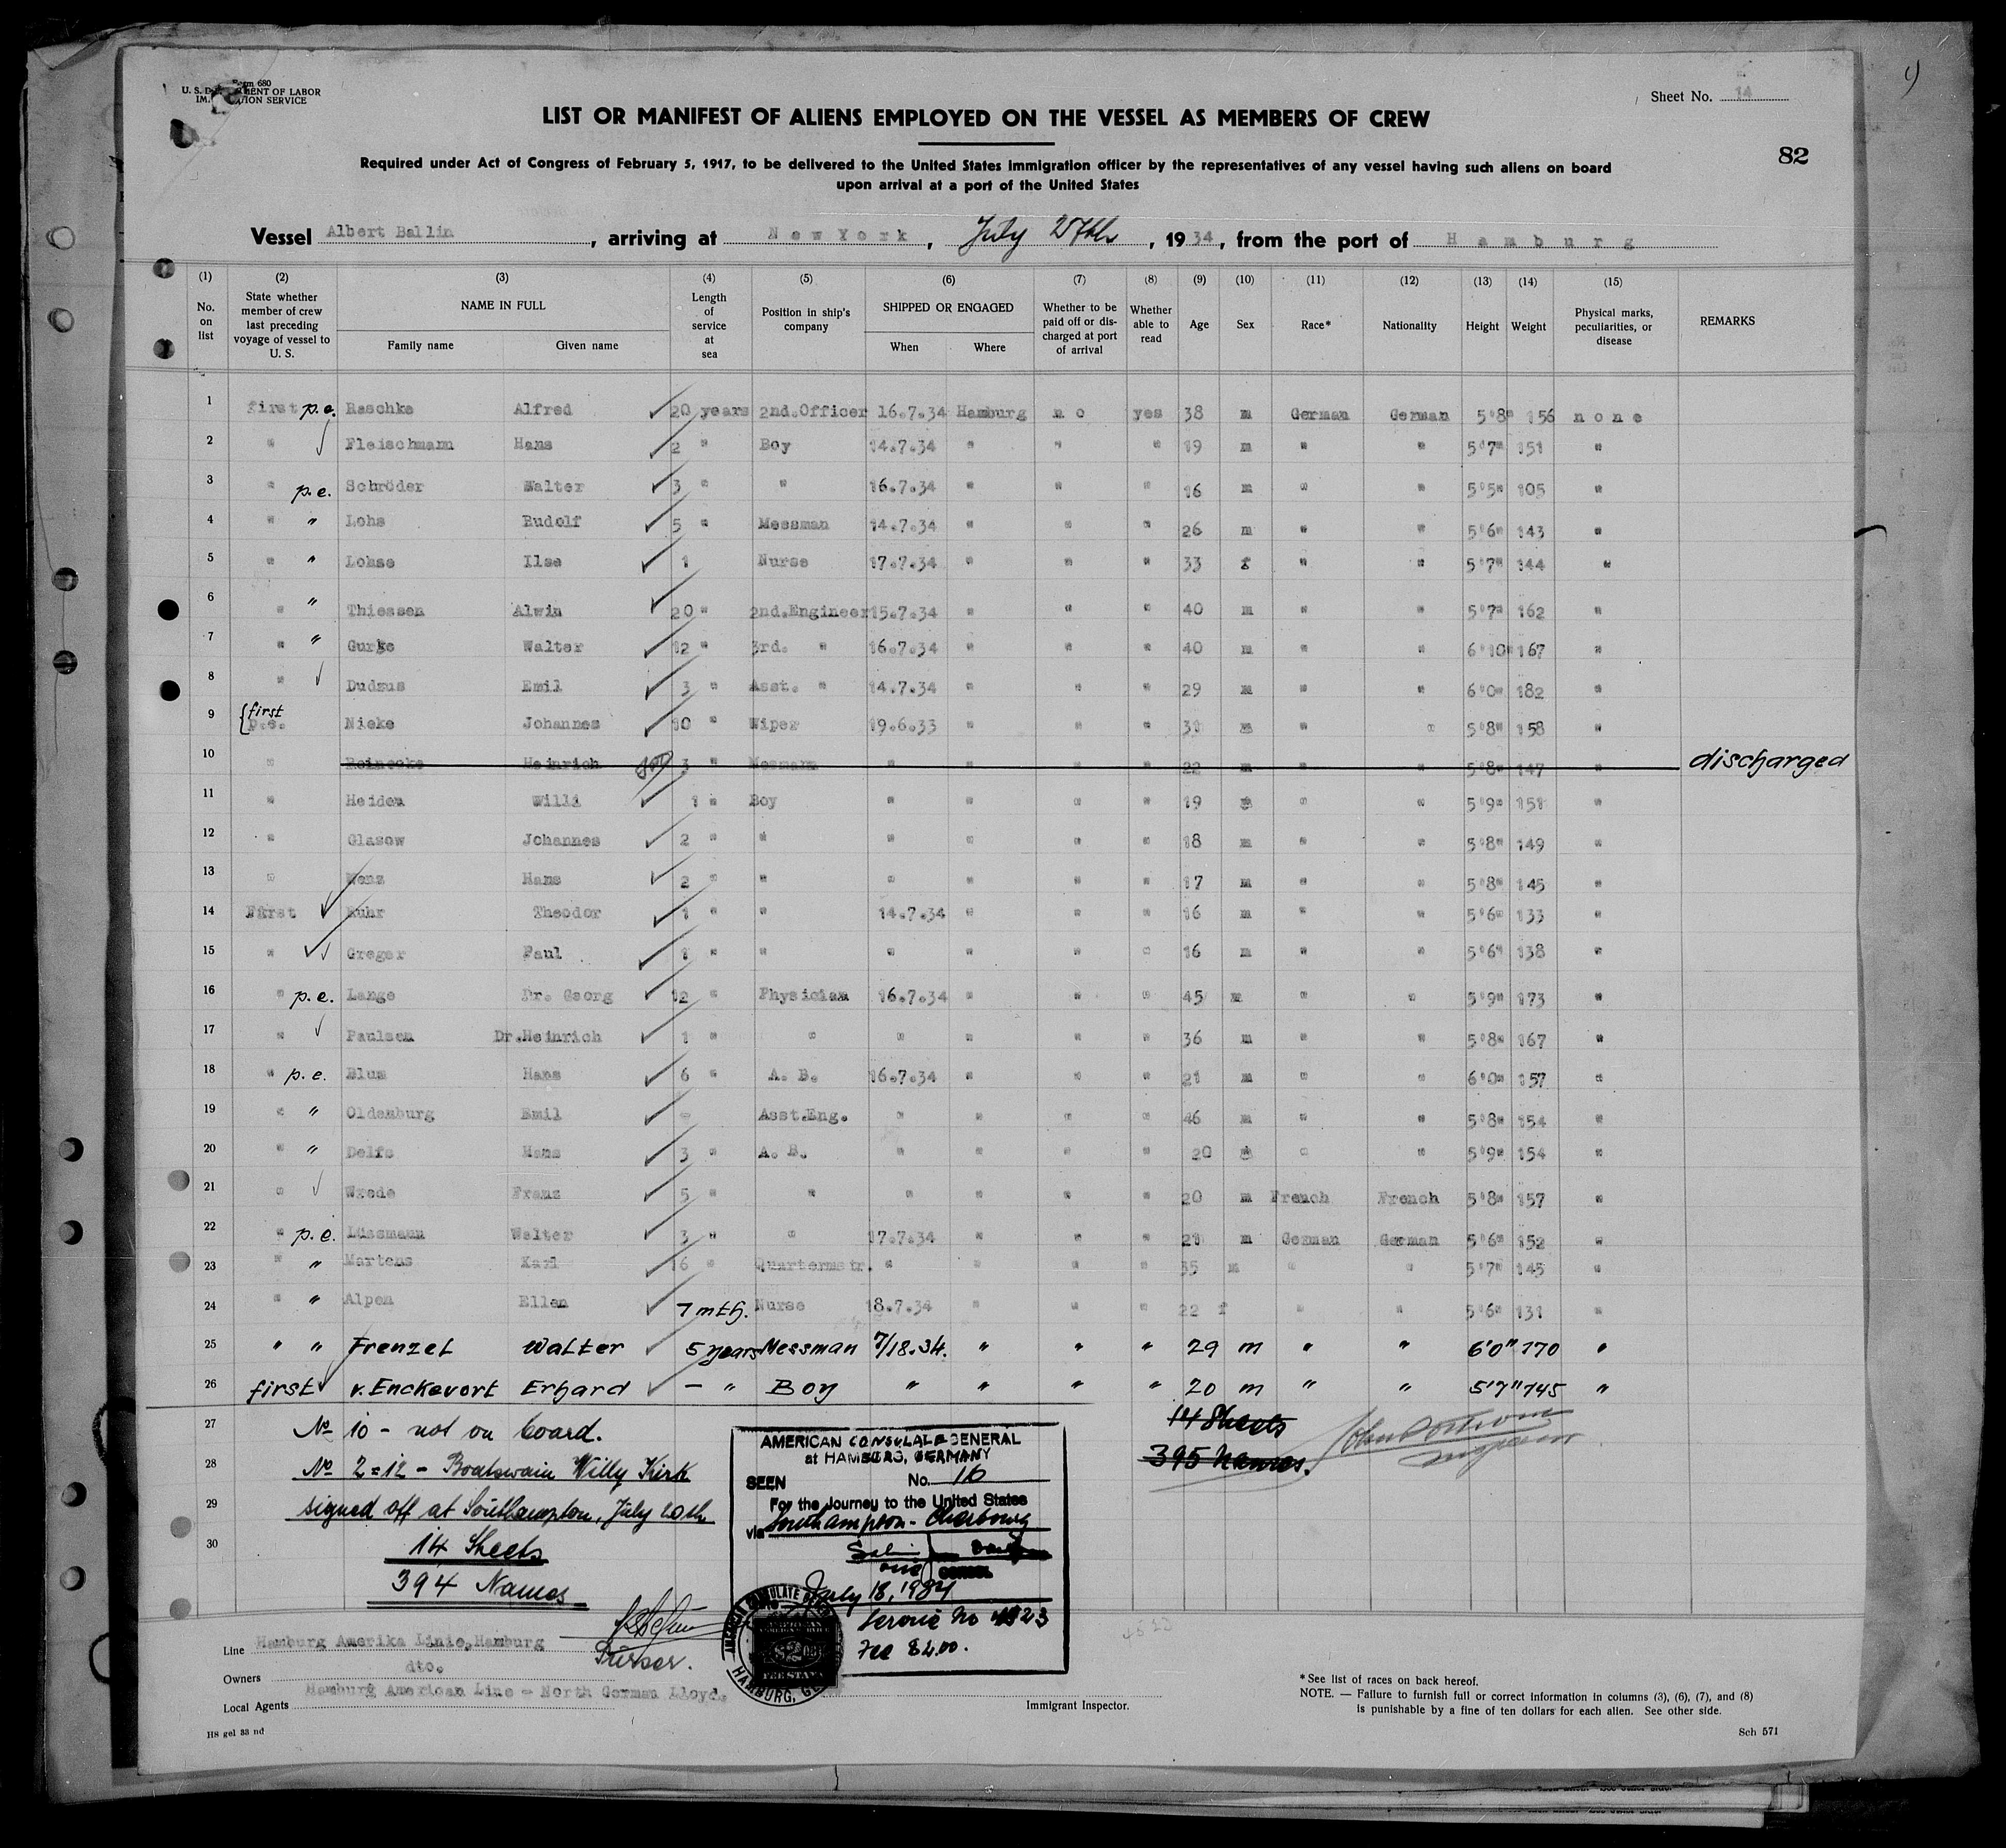 Form 680
U. S. DEPARTMENT OF LABOR
IMMIGRATION SERVICE
Sheet No. 14
LIST OR MANIFEST OF ALIENS EMPLOYED ON THE VESSEL AS MEMBERS OF CREW
82
Required under Act of Congress of February 5, 1917, to be delivered to the United States Immigration officer by the representatives of any vessel having such aliens on board
upon arrival at a port of the United States
Vessel Albert Ballin, arriving at New York, July 27th, 1934, from the port of Hamburg
(1) (2) (3) (4) (5) (6) (7) (8) (9) (10) (11) (12) (13) (14) (15)
No. on list State whether member of crew last preceding voyage of vessel to U. S. NAME IN FULL Family name Given name Length of service at sea Position in ship's company SHIPPED OR ENGAGED When Where Whether to be paid off or discharged at port of arrival Whether able to read Age Sex Race* Nationality Height Weight Physical marks, peculiarities, or disease REMARKS
1 first p.e. Raschke Alfred 20 years 2nd.Officer 16.7.34 Hamburg no yes 38 m German German 5'8" 156 none
2 " Fleischmann Hans 2 " Boy 14.7.34 " " " 19 m " " 5'7" 151 "
3 " p.e. Schröder Walter 3 " " 16.7.34 " " " 16 m " " 5'5" 105 "
4 " " Lohs Rudolf 5 " Messman 14.7.34 " " " 26 m " " 5'6" 143 "
5 " " Lohse Ilse 1 Nurse 17.7.34 " " " 33 f " " 5'7" 144 "
6 " " Thiessen Alwin 20 " 2nd.Engineer 15.7.34 " " " 40 m " " 5'7" 162 "
7 " " Gurke Walter 12 " 3rd. " 16.7.34 " " " 40 m " " 6'10" 167 "
8 " Dudzus Emil 3 " Asst. " 14.7.34 " " " 29 m " " 6'0" 182 "
9 first p.e. Nieke Johannes 10 " Wiper 19.6.33 " " " 31 m " " 5'8" 158 "
10 " Reinecke Heinrich 3 " Messman " " " " 22 m " " 5'8" 147 " discharged
11 " Heiden Willi 1 " Boy " " " " 19 m " " 5'9" 151 "
12 " Glasow Johannes 2 " " " " " " 18 m " " 5'8" 149 "
13 " Wenz Hans 2 " " " " " " 17 m " " 5'8" 145 "
14 First Ruhr Theodor 1 " " 14.7.34 " " " 16 m " " 5'6" 133 "
15 " Greger Paul 1 " " " " " " 16 m " " 5'6" 138 "
16 " p.e. Lange Dr. Georg 12 " Physician 16.7.34 " " " 45 m " " 5'9" 173 "
17 " Paulsen Dr.Heinrich 1 " " " " " " 36 m " " 5'8" 167 "
18 " p.e. Blum Hans 6 " A. B. 16.7.34 " " " 21 m " " 6'0" 157 "
19 " " Oldenburg Emil - Asst.Eng. " " " " 46 m " " 5'8" 154 "
20 " " Delfs Hans 3 " A. B. " " " " 20 m " " 5'9" 154 "
21 " Wrede Franz 5 " " " " " " 20 m French French 5'8" 157 "
22 " p.e. Lüssmann Walter 3 " " 17.7.34 " " " 21 m German German 5'6" 152 "
23 " " Martens Karl 6 " Quartermstr. " " " " 35 m " " 5'7" 145 "
24 " " Alpen Ellen 7 mth. Nurse 18.7.34 " " " 22 f " " 5'6" 131 "
25 " " Frenzel Walter 5 years Messman 7/18.34. " " " 29 m " " 6'0" 170 "
26 first v. Enckevort Erhard - " Boy " " " " 20 m " " 5'7" 145 "
27 No 10 - not on board.
28 No 2=12 - Boatswain Willy Kirk
29 signed off at Southampton, July 20th
30 14 Sheets
394 Names
Purser.
14 Sheets
395 Names.
AMERICAN CONSULATE GENERAL
at HAMBURG, GERMANY
SEEN No. 16
For the Journey to the United States
via Southampton - Cherbourg
CONSUL
July 18, 1934
Service No 4523
Fee $2.00.
4523
Line Hamburg Amerika Linie, Hamburg
Owners dto.
Local Agents Hamburg American Line - North German Lloyd.
Immigrant Inspector.
* See list of races on back hereof.
NOTE. — Failure to furnish full or correct information in columns (3), (6), (7), and (8)
is punishable by a fine of ten dollars for each alien. See other side.
HS gel 33 nd
Sch 571